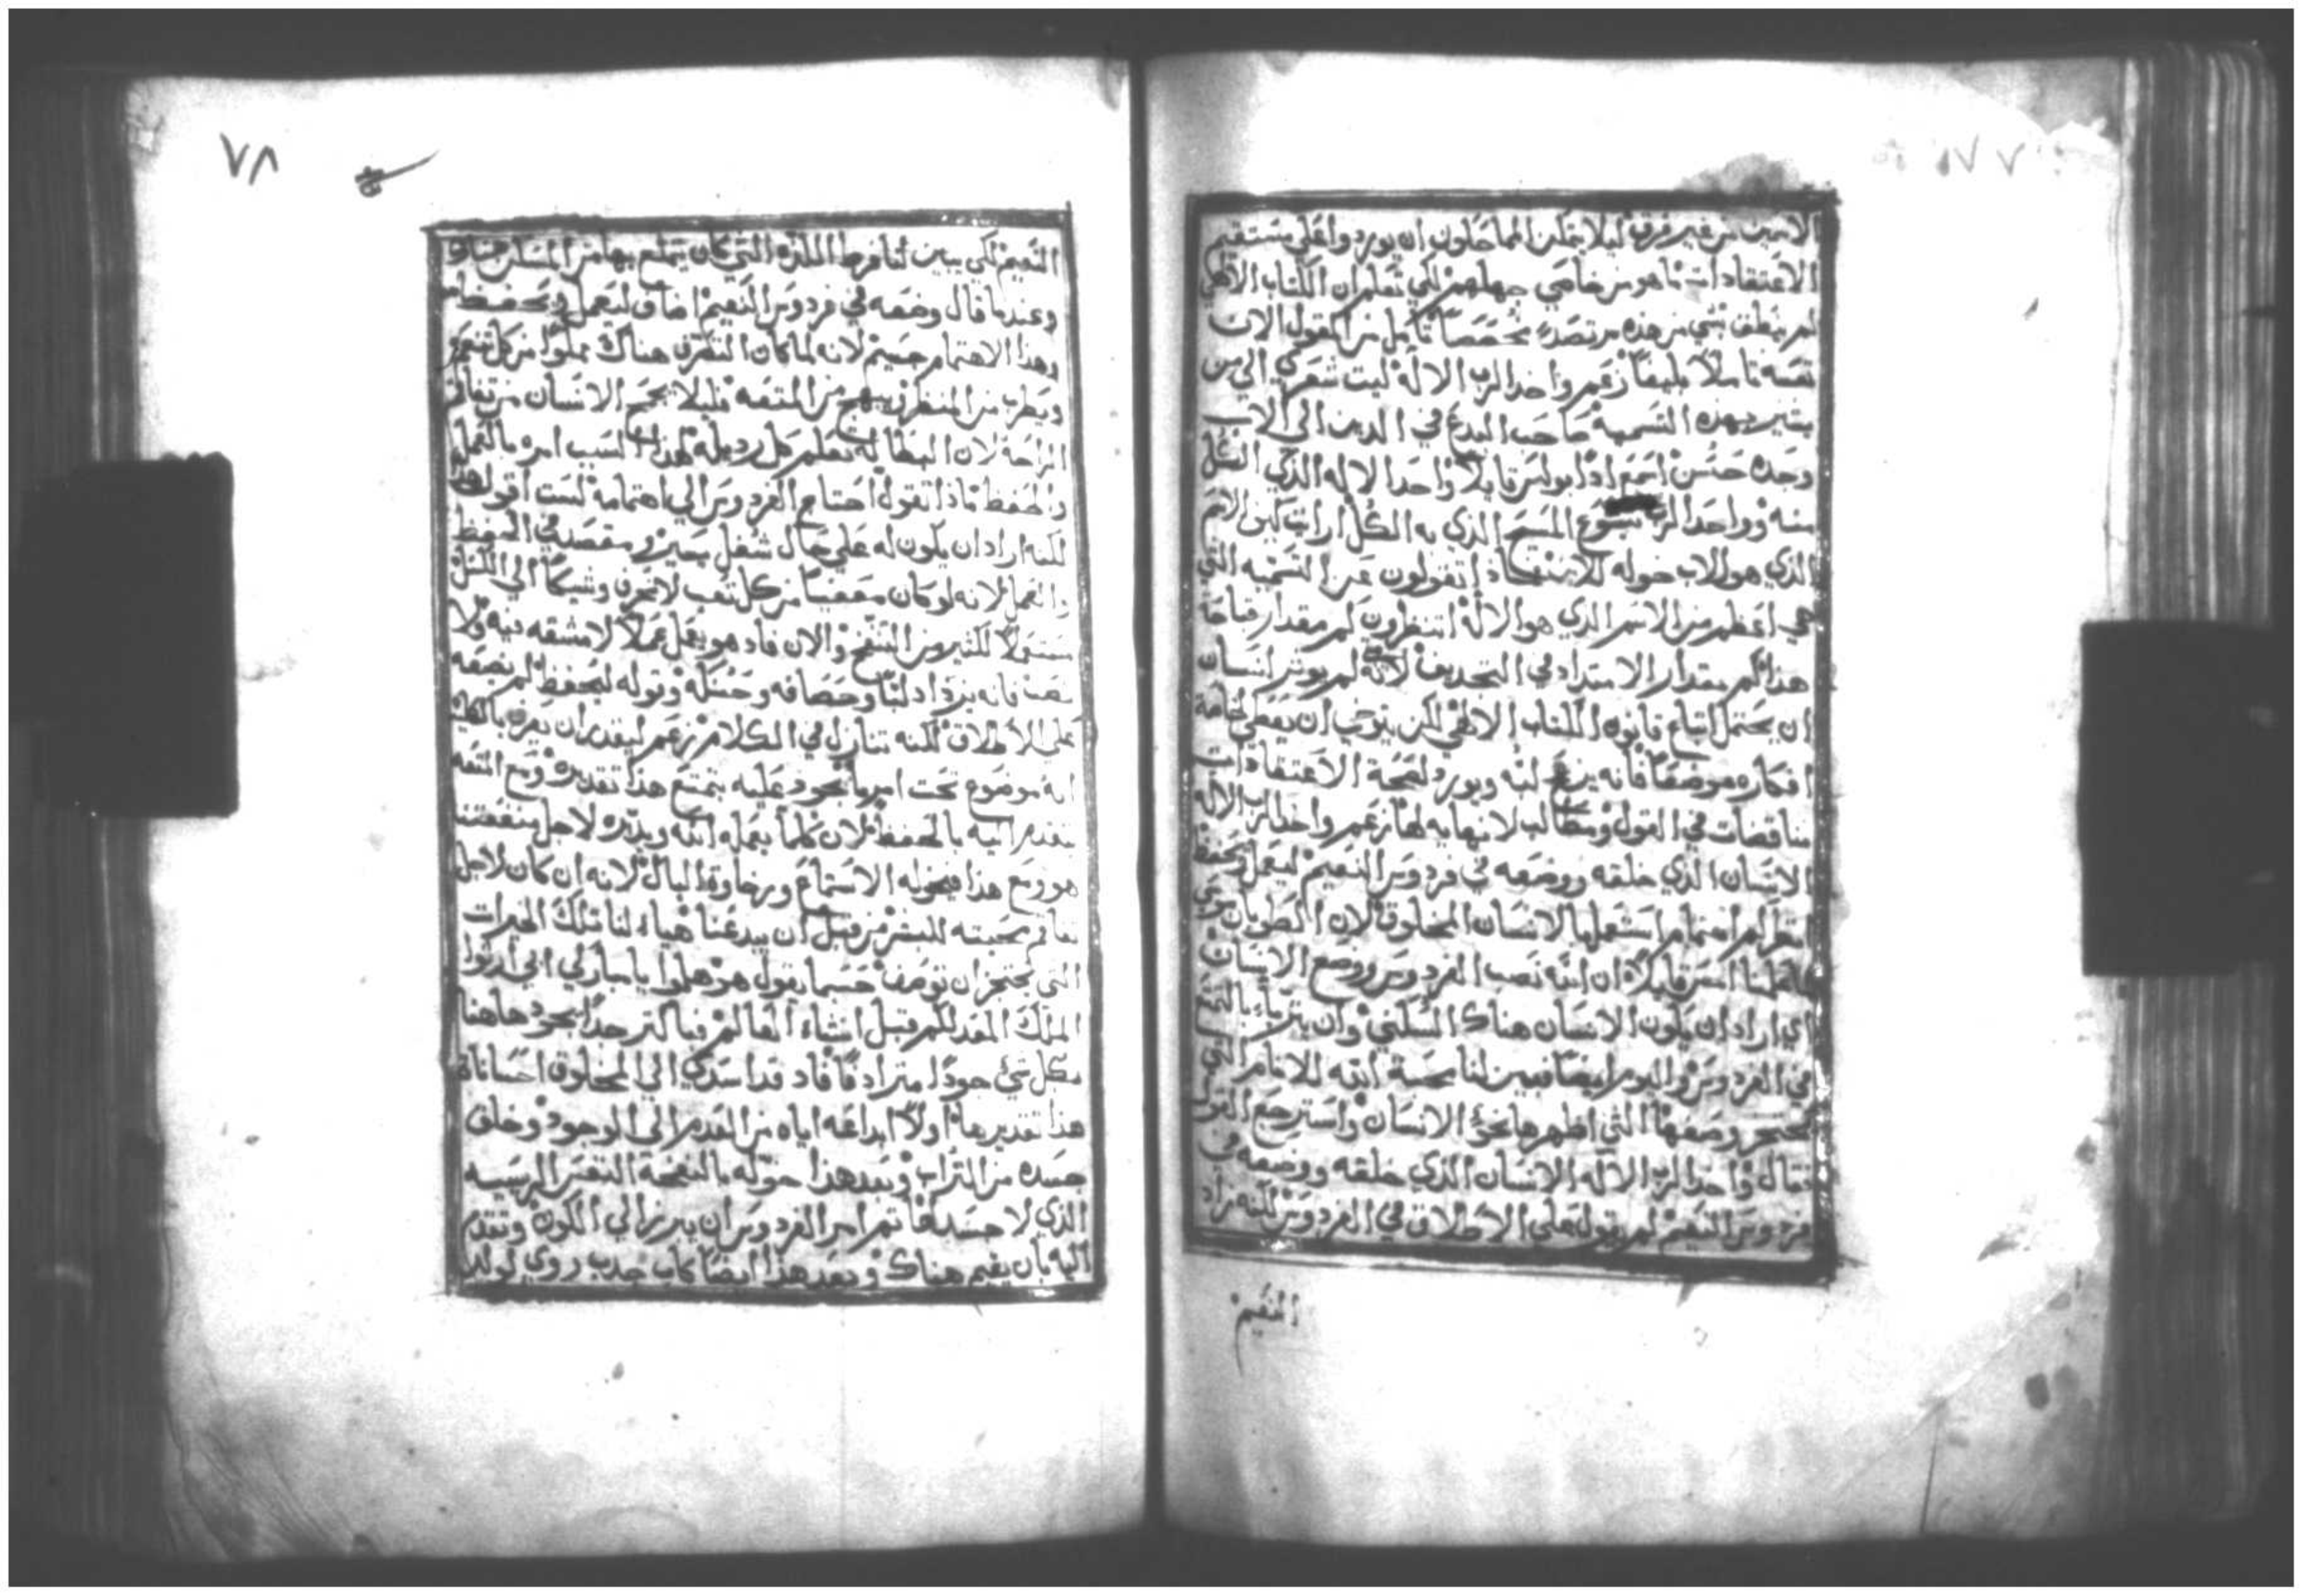 الاسمين من غير فرق ليلا يمكن المماحلون ان يوردوا على مستقيم
الاعتقادات ما هو من خاصي جهلهم لكي تعلم ان الكتاب الالهي
لم ينطق بشي من هذه مرتصدا مخصصا تامل من المقول الان
نفسه تاملا بليغا زعم واخذ الرب الاله ليت شعري الي من
يشير بهذه التسمية صاحب البدع في الدين الي الاب
وحده حسن اسمع اذا بولس قايلا واحدا الاله الذي الكل
منه وواحد الرب يسوع المسيح الذي به الكل ارايت كيف الاسم
الذي هو للاب خوله للابن ماذا تقولون عن التسميه التي
هي اعظم من الاسم الذي هو الاله انتظرون كم مقدار قباحة
هذا كم مقدار الامتداد في التجديف لانه لم يوثر انسان
ان يحتمل اتباع قانون الكتاب الالهي لكن يتوخي ان يعطي خاصة
افكاره موضعا فانه يزعج لبه ويورد لصحة الاعتقادات
مناقضات في القول ومطالب لا نهايه لها زعم واخذ الرب الاله
الانسان الذي خلقه ووضعه في فردوس النعيم ليعمل ويحفظ
انظر كم اهتمام استعملها لانسان المخلوق لان الطوبان موسي
عاملنا امس قايلا ان الله نصب الفردوس ووضع الانسان
اي اراد ان يكون الانسان هناك السكني وان يتربا بالتنعم
في الفردوس واليوم ايضا فيبين لنا محبة الله للانام التي
تعجز وصفها التي اظهرها نحو الانسان واسترجع القول
فقال واخذ الرب الاله الانسان الذي خلقه ووضعه في
فردوس النعيم لم يقول علي الاطلاق في الفردوس لكنه زاد
النعيم
٧٨
النعيم لكي يبين لنا فرط الملذه التي كان يتمتع بها من المسكن هناك
وعندما قال وضعه في فردوس النعيم اضاف ليعمل ويحفظ
وهذا الاهتمام جسيم لانه لما كان التصرف هناك مملوا من كل تنعم
ويطرب من المنظر ويبهج من المتعه فليلا يجمح الانسان من تفاقم
الراحة لان البطاله تعلم كل رديله لهذا السبب امره بالعمل
والحفظ ماذا تقول احتاج الفردوس الي اهتمامه لست اقول هذا
لكنه اراد ان يكون له علي حال شغل يسير ومقصد في الحفظ
والعمل لانه لو كان معفيا من كل تعب لانحرف وشيكا الي الكسل
مستولا لكثير من التنيح والان فاذ هو يعمل عملا لا مشقه فيه ولا
نصب فانه يزداد لبا وحصافه وحنكه وقوله ليحفظ لم يضعه
علي الاطلاق لكنه تنازل في الكلام زعم ليقدر ان يعرف بالكليه
انه موضوع تحت امر ما يجود عليه يتمتع هذا تقديره ومع المتعه
تقدم اليه بالحفظ لان كلما يعمله الله ويدبره لاجل منفعتنا
هو ومع هذا فيخوله الاستماع ورخاوة البال لانه ان كان لاجل
تفاقم محبته للبشر من قبل ان يبدعنا هياء لنا تلك الخيرات
التي تعجز ان توصف حسبما يقول هو هلموا يا مباركي ابي ارثوا
الملك المعد لكم قبل انشاء العالم فبما اكثر جدا يجود هاهنا
بكل شي جودا مترادفا فاذ قد اسدي الي المخلوق احسانات
هذا تقديرها اولا ابداعه اياه من العدم الي الوجود وخلق
جسده من التراب وبعد هذا خوله بالنفخة النفس الرييسيه
الذي لا جسد لها ثم امر الفردوس ان يبرز الي الكون وتقدم
اليه بان يقيم هناك وبعد هذا ايضا كاب حدب روي لولد